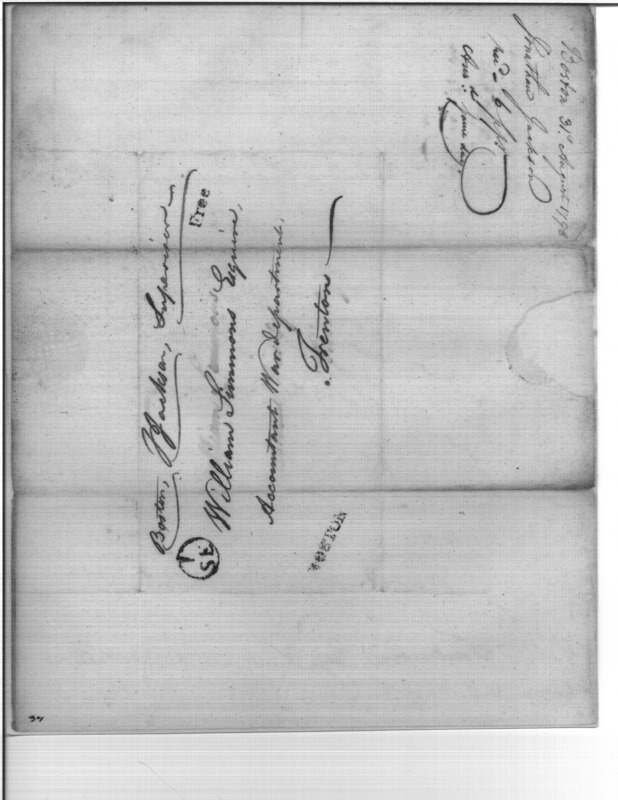 Boston, J Jackson, Supervisor
Free
William Simmons Esquire,
Accountant War department,
Trenton
1
SE
BOSTON
Boston 31st August 1798
Jonathan Jackson
same day
34